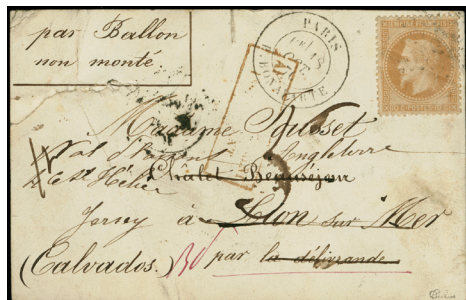 par Ballon
non monté
PARIS
18
Madame Pousset
Val d'
Angleterre
St Hélier
Chalet Beauséjour
Jersey à Lion sur Mer
(Calvados) par la délivrande